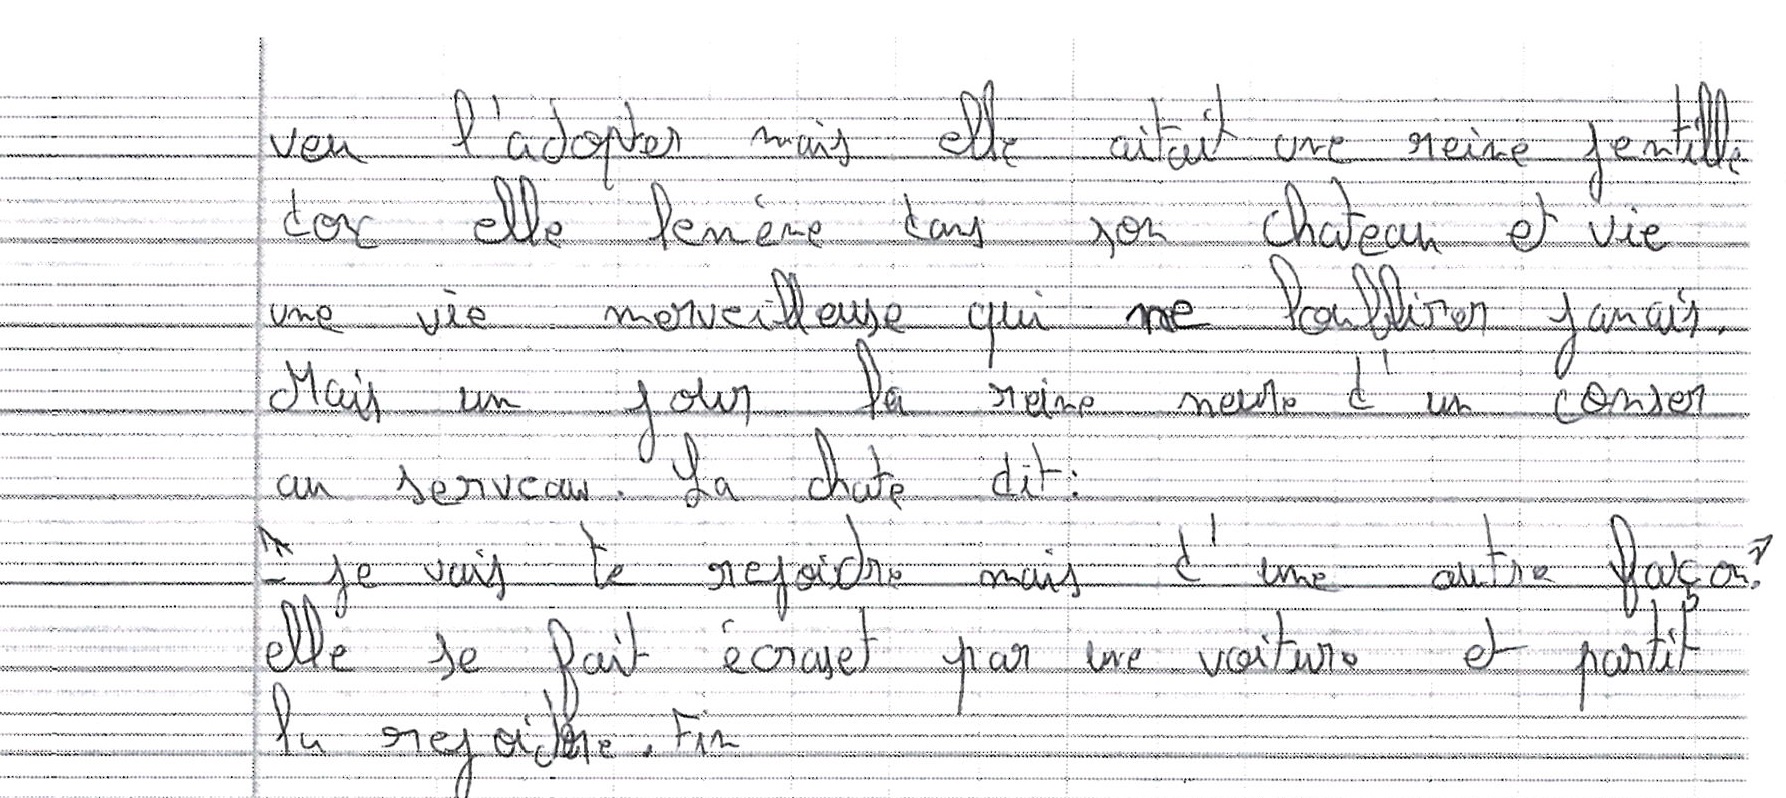 veu l'adopter mais elle aitait une reine gentille
donc elle lemène dans son chateau et vie
une vie merveilleuse qui ne l'oublirer jamais.
Mais un jour la reine meure d' un conser
au serveau. La chate dit:
- je vais te rejoidre mais d' une autre façon.
elle se fait écraset par une voiture et partit
la rejoidre. Fin